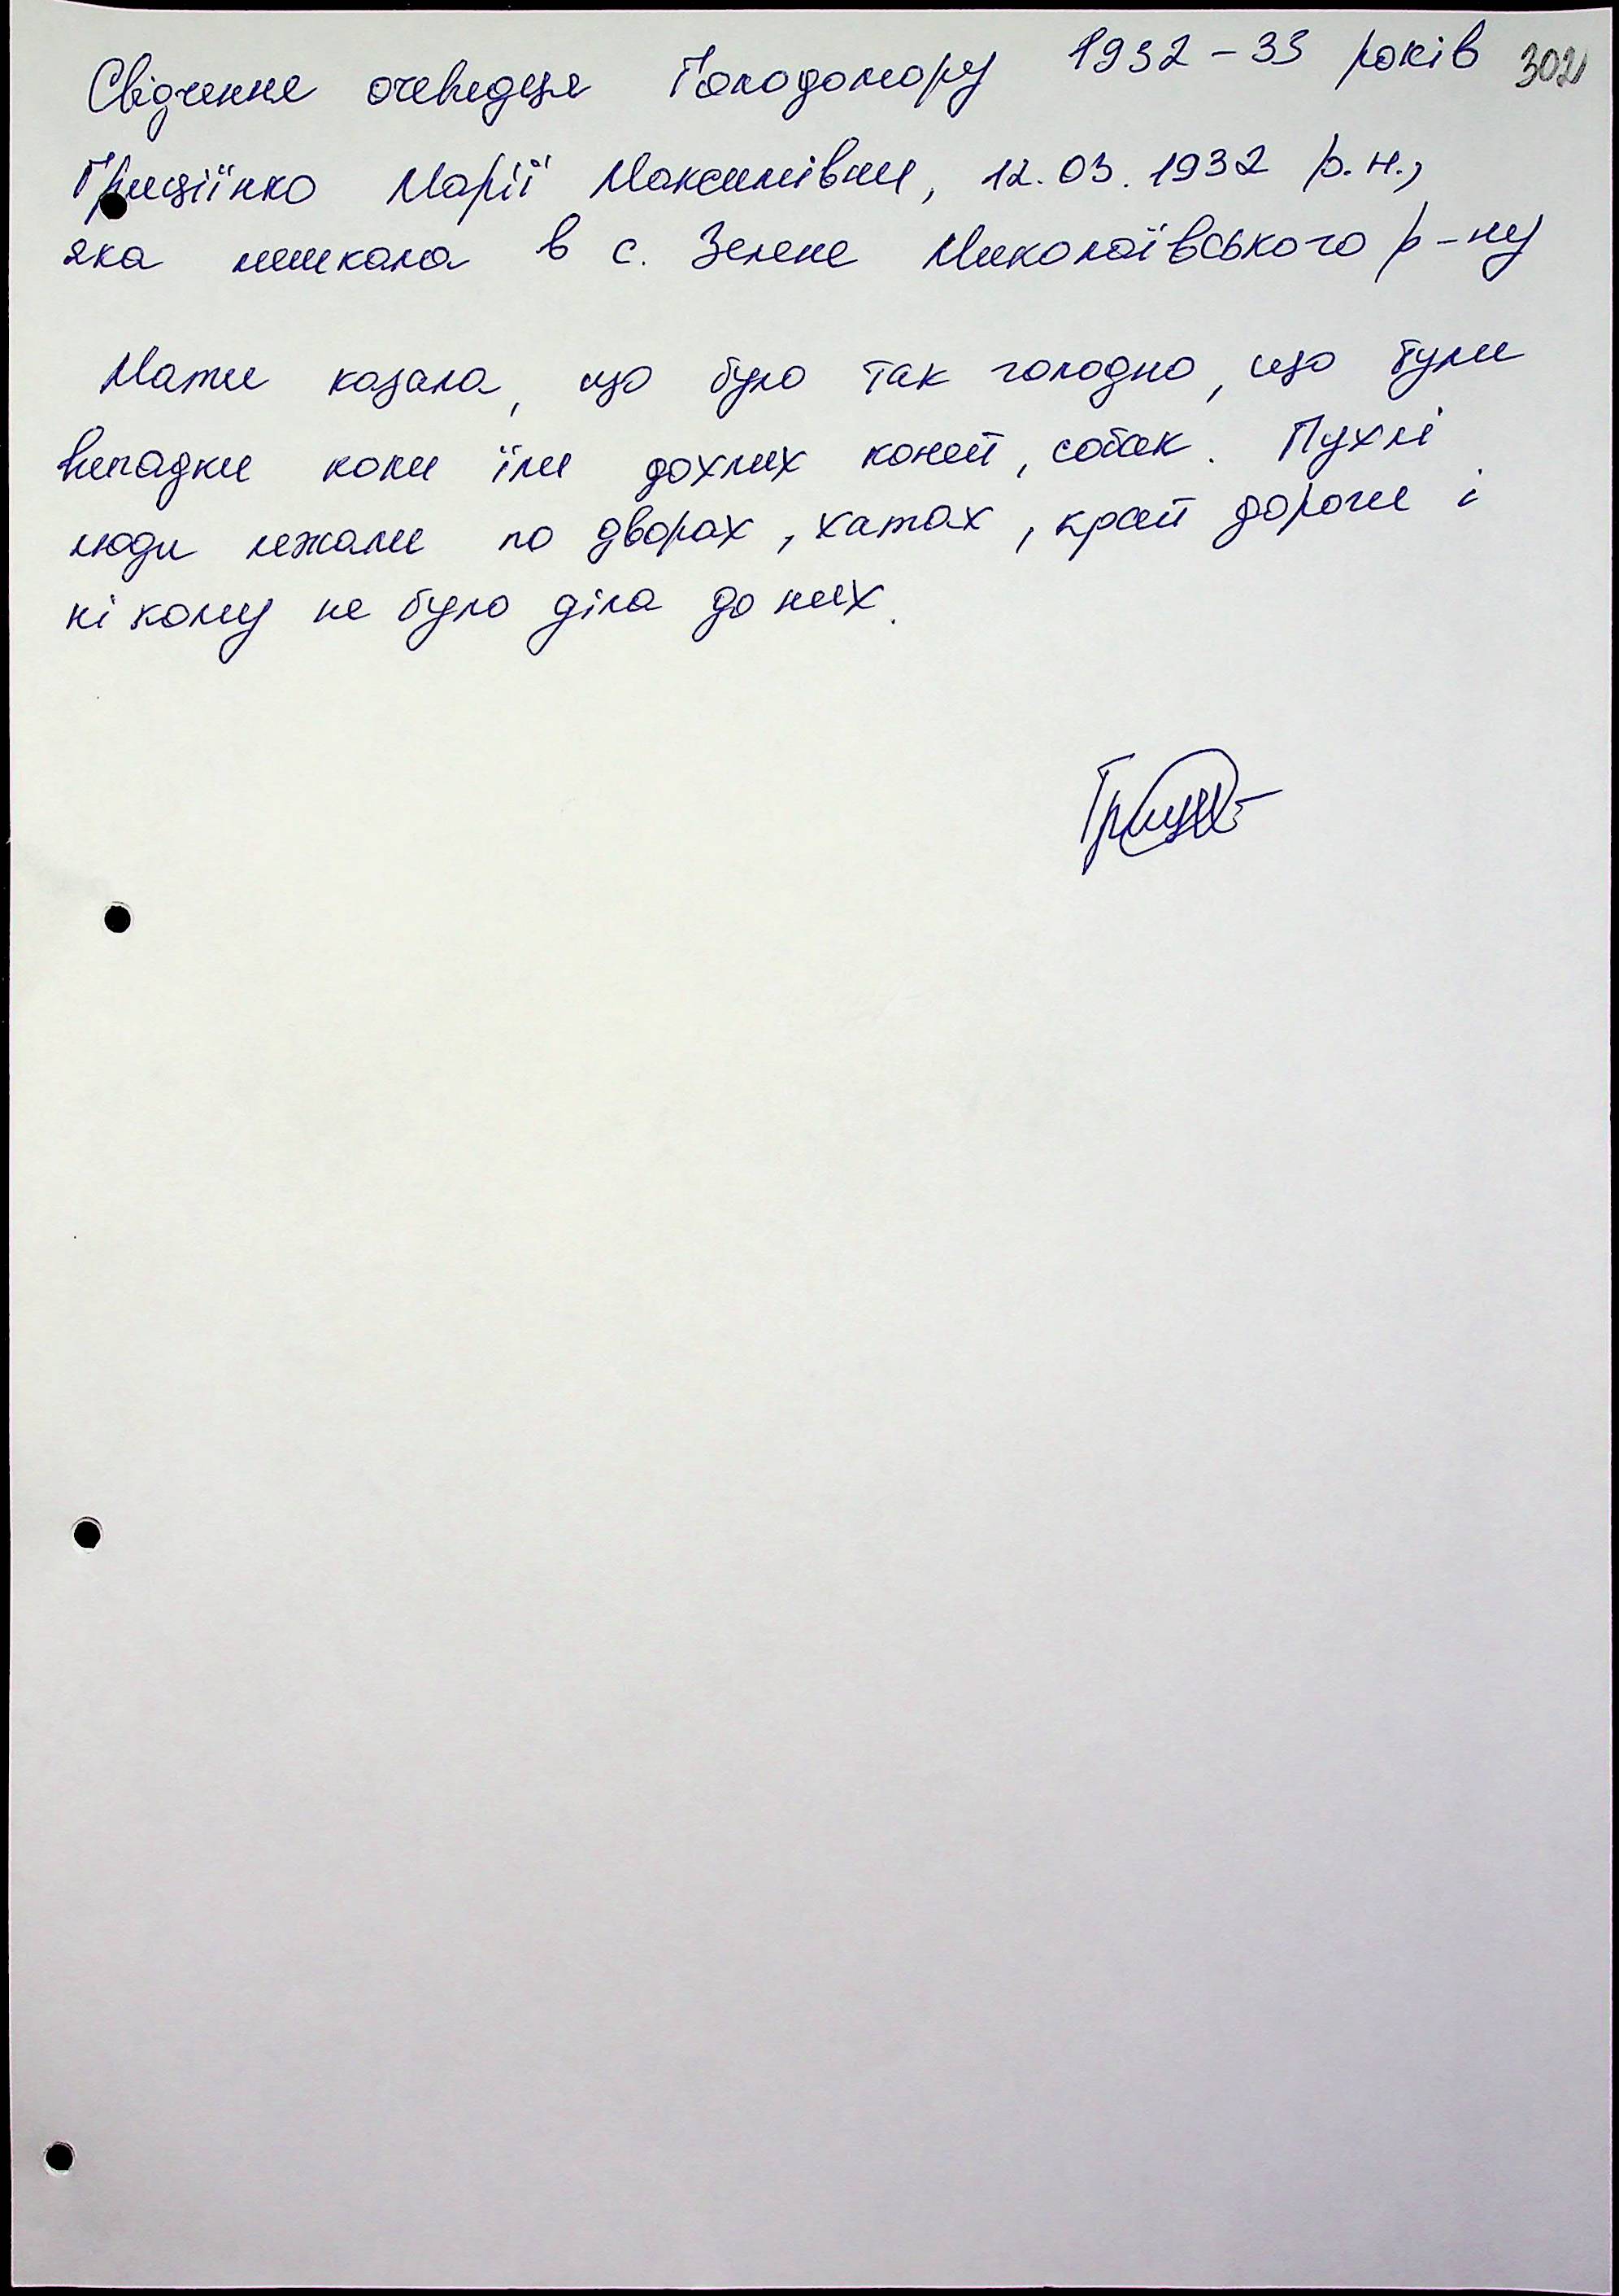 Свідчення очевидця Голодомору 1932-33 років 302
Грицїінко Марії Максимівни, 12.03.1932 р.н.,
яка мешкала в с. Зелене Миколаївського р-ну
Мати казала, що було так голодно, що були
випадки коли їли дохлих коней, собак. Пухлі
люди лежали по дворах, хатах, край дороги і
ні кому не було діла до них.